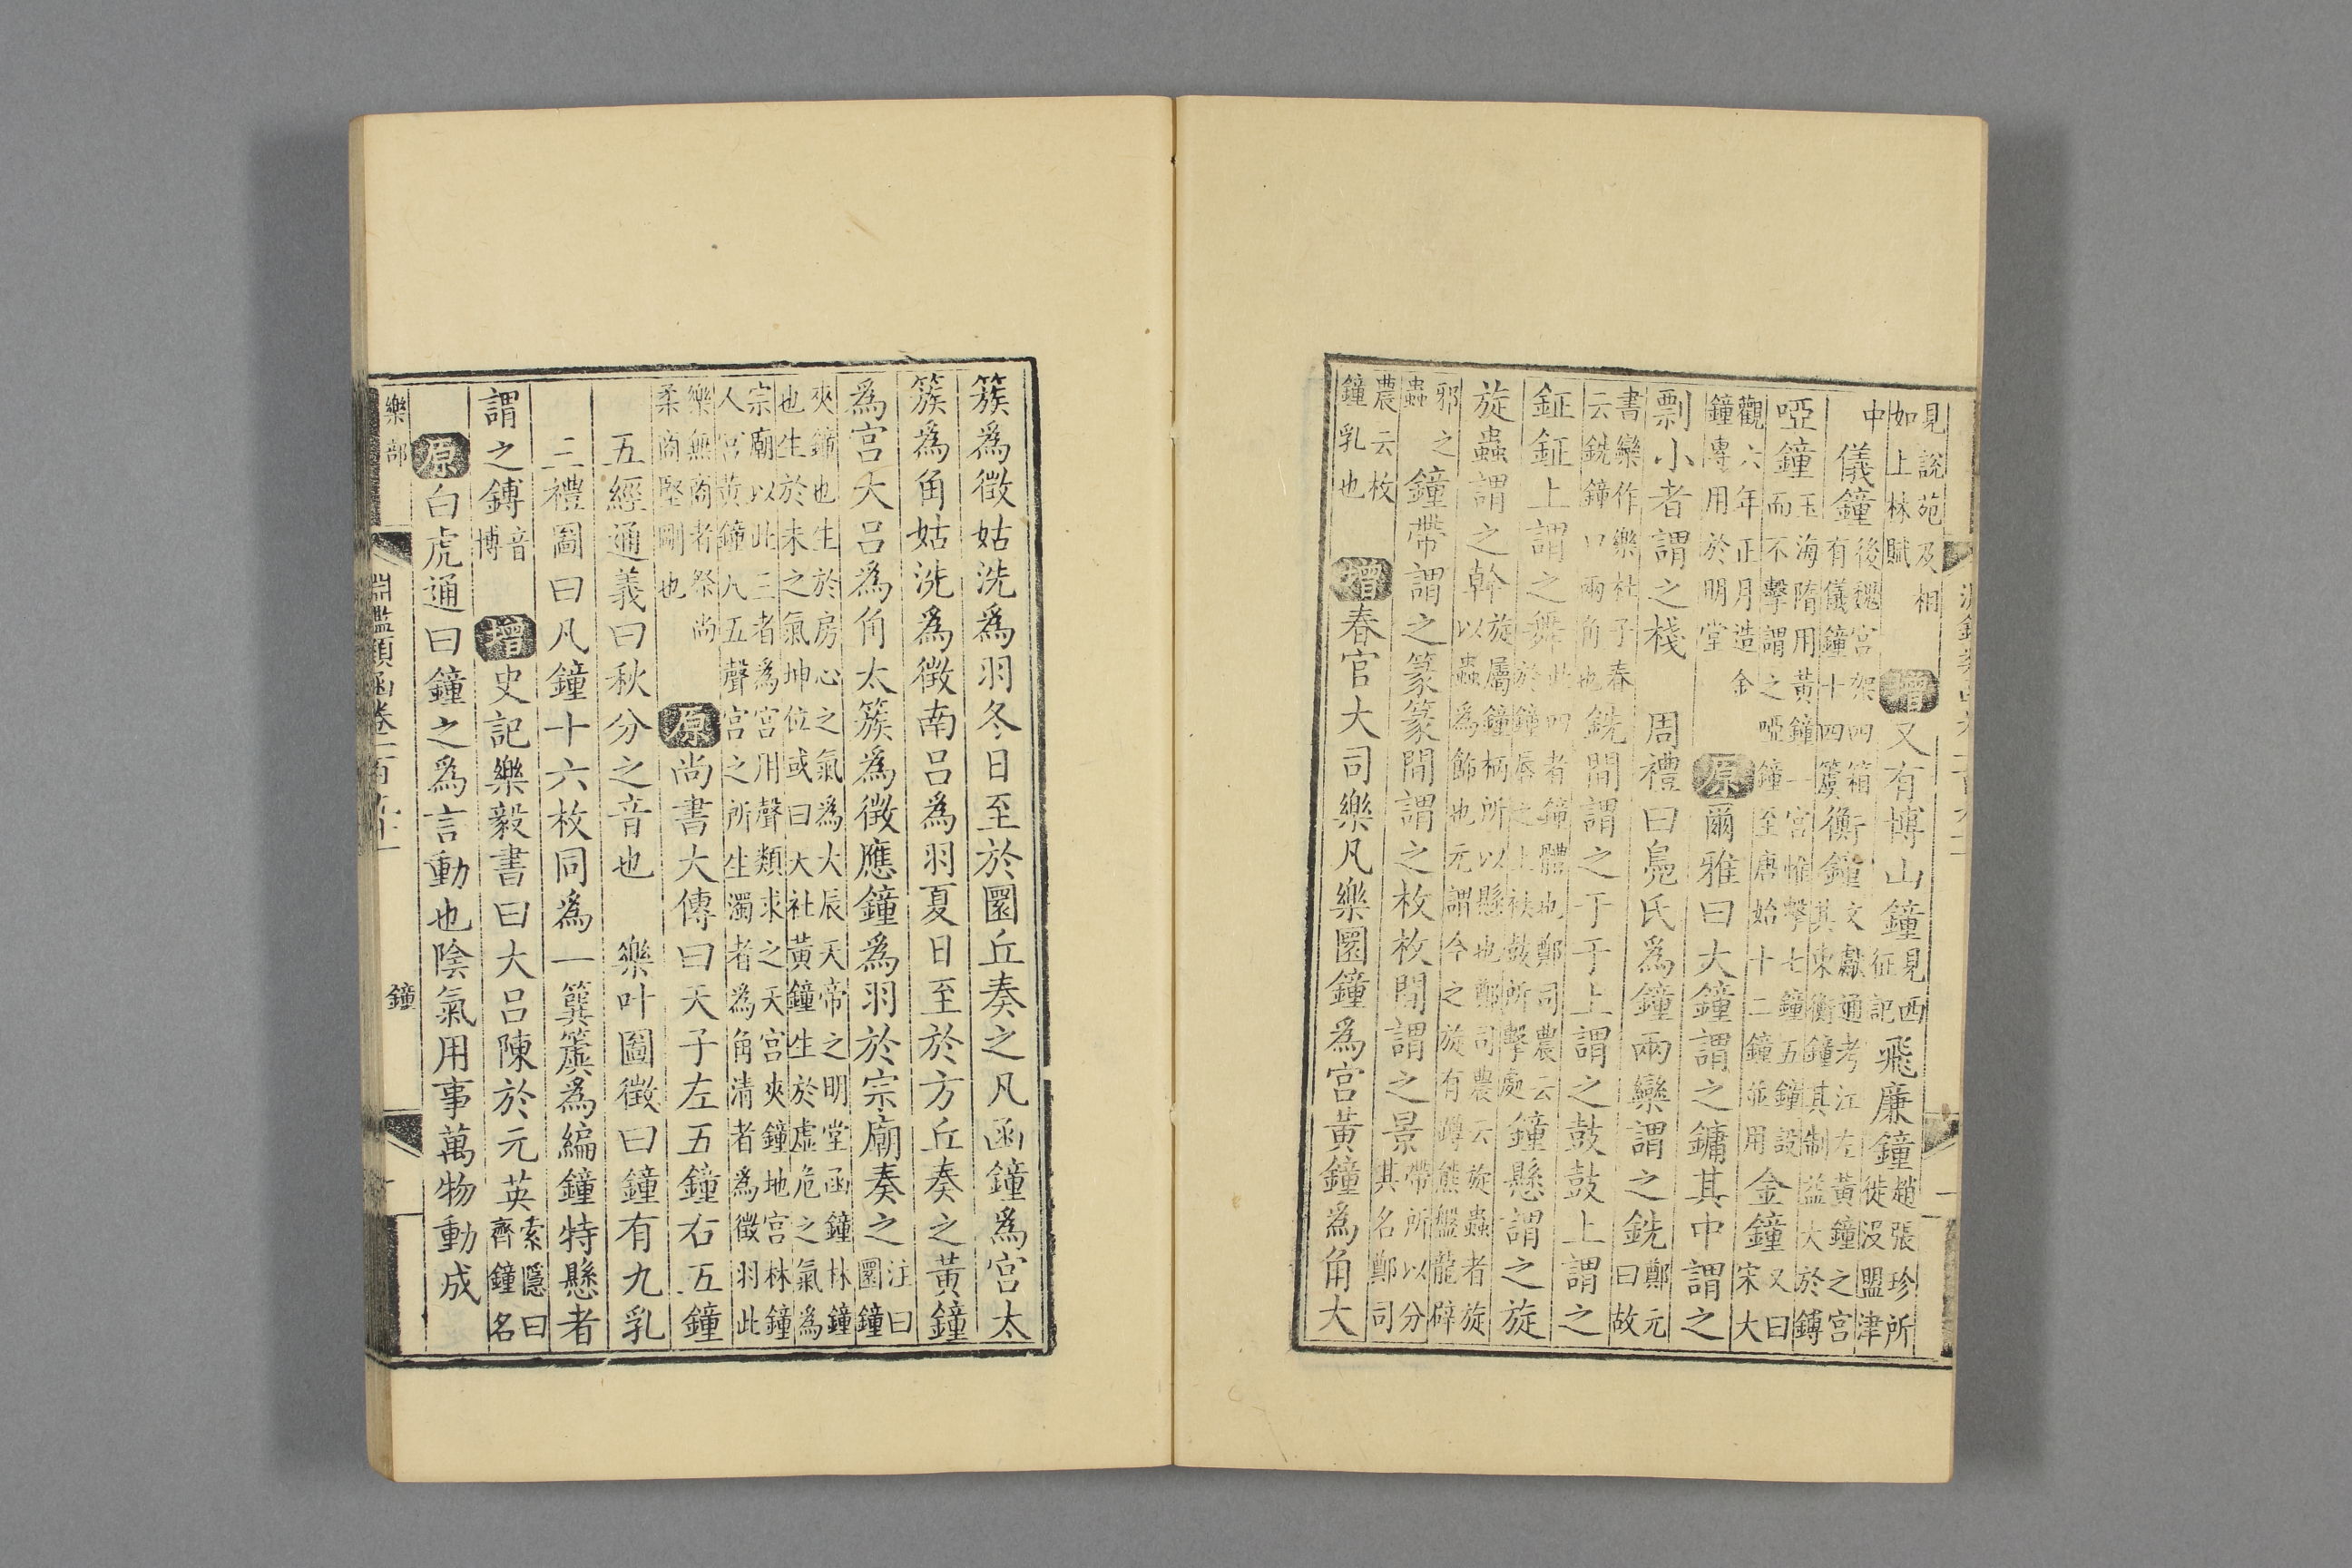 見說苑及相
如上林賦增又有博山鐘見西征記飛廉鐘趙張珍所徙沒盟津
中儀鐘後魏宮架四箱有儀鐘十四簴衡鐘文獻通考江左黃鐘之宮其東衡鐘其制益大於鎛
啞鐘玉海隋用黃鐘一宮惟擊七鐘五鐘設而不擊謂之啞鐘至唐始十二鐘並用金鐘又曰宋大
觀六年正月造金鐘專用於明堂原爾雅曰大鐘謂之鏞其中謂之
剽小者謂之棧周禮曰鳧氏為鐘兩欒謂之銑鄭元曰故
書欒作樂杜子春云銑鐘口兩角也銑間謂之于于上謂之鼓鼓上謂之
鉦鉦上謂之舞此四者鐘體也鄭司農云於鐘唇之上袪鼓所擊處鐘懸謂之旋
旋蟲謂之幹旋屬鐘柄所以懸也鄭司農云旋蟲者旋以蟲為飾也元謂今之旋有蹲熊盤龍辟
邪之蟲鐘帶謂之篆篆間謂之枚枚間謂之景帶所以分其名鄭司
農云枚鐘乳也增春官大司樂凡樂圜鐘為宮黃鐘為角大
簇為徵姑洗為羽冬日至於圜丘奏之凡函鐘為宮太
簇為角姑洗為徵南呂為羽夏日至於方丘奏之黃鐘
為宮大呂為角太簇為徵應鐘為羽於宗廟奏之注曰圜鐘
夾鐘也生於房心之氣為大辰天帝之明堂函鐘林鐘也生於未之氣坤位或曰大社黃鐘生於虛危之氣為
宗廟以此三者為宮用聲類求之天宮夾鐘地宮林鐘人宮黃鐘凡五聲宮之所生濁者為角清者為徵羽此
樂無商者祭尚柔商堅剛也原尚書大傳曰天子左五鐘右五鐘
五經通義曰秋分之音也樂叶圖徵曰鐘有九乳
三禮圖曰凡鐘十六枚同為一簨簴為編鐘特懸者
謂之鎛音博增史記樂毅書曰大呂陳於元英索隱曰齊鐘名
原白虎通曰鐘之為言動也陰氣用事萬物動成
樂部 淵鑑類函卷一百 鐘